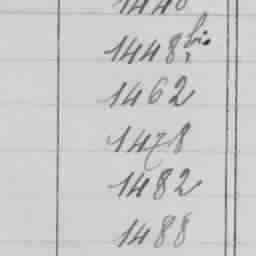 1448
1448 bis
1462
1478
1482
1488